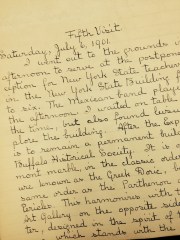 Fifth Visit
Saturday, July 6, 1901.
I went out to the grounds
afternoon to serve at the postpon
ception for New York State teacher
in the New York State Building f
to six. The Mexican band playe
the afternoon. I waited on table
the time, but also found leisu
plore the building. After the Expo
is to remain a permanent buil
Buffalo Historical Society. It is o
mont marble, in the classic order
ure known as the Greek Doric, b
same order as the Parthenon
tricks. This harmonizes with t
Art Gallery on the opposite side
ter, designed in the spirit of t
which stands with the